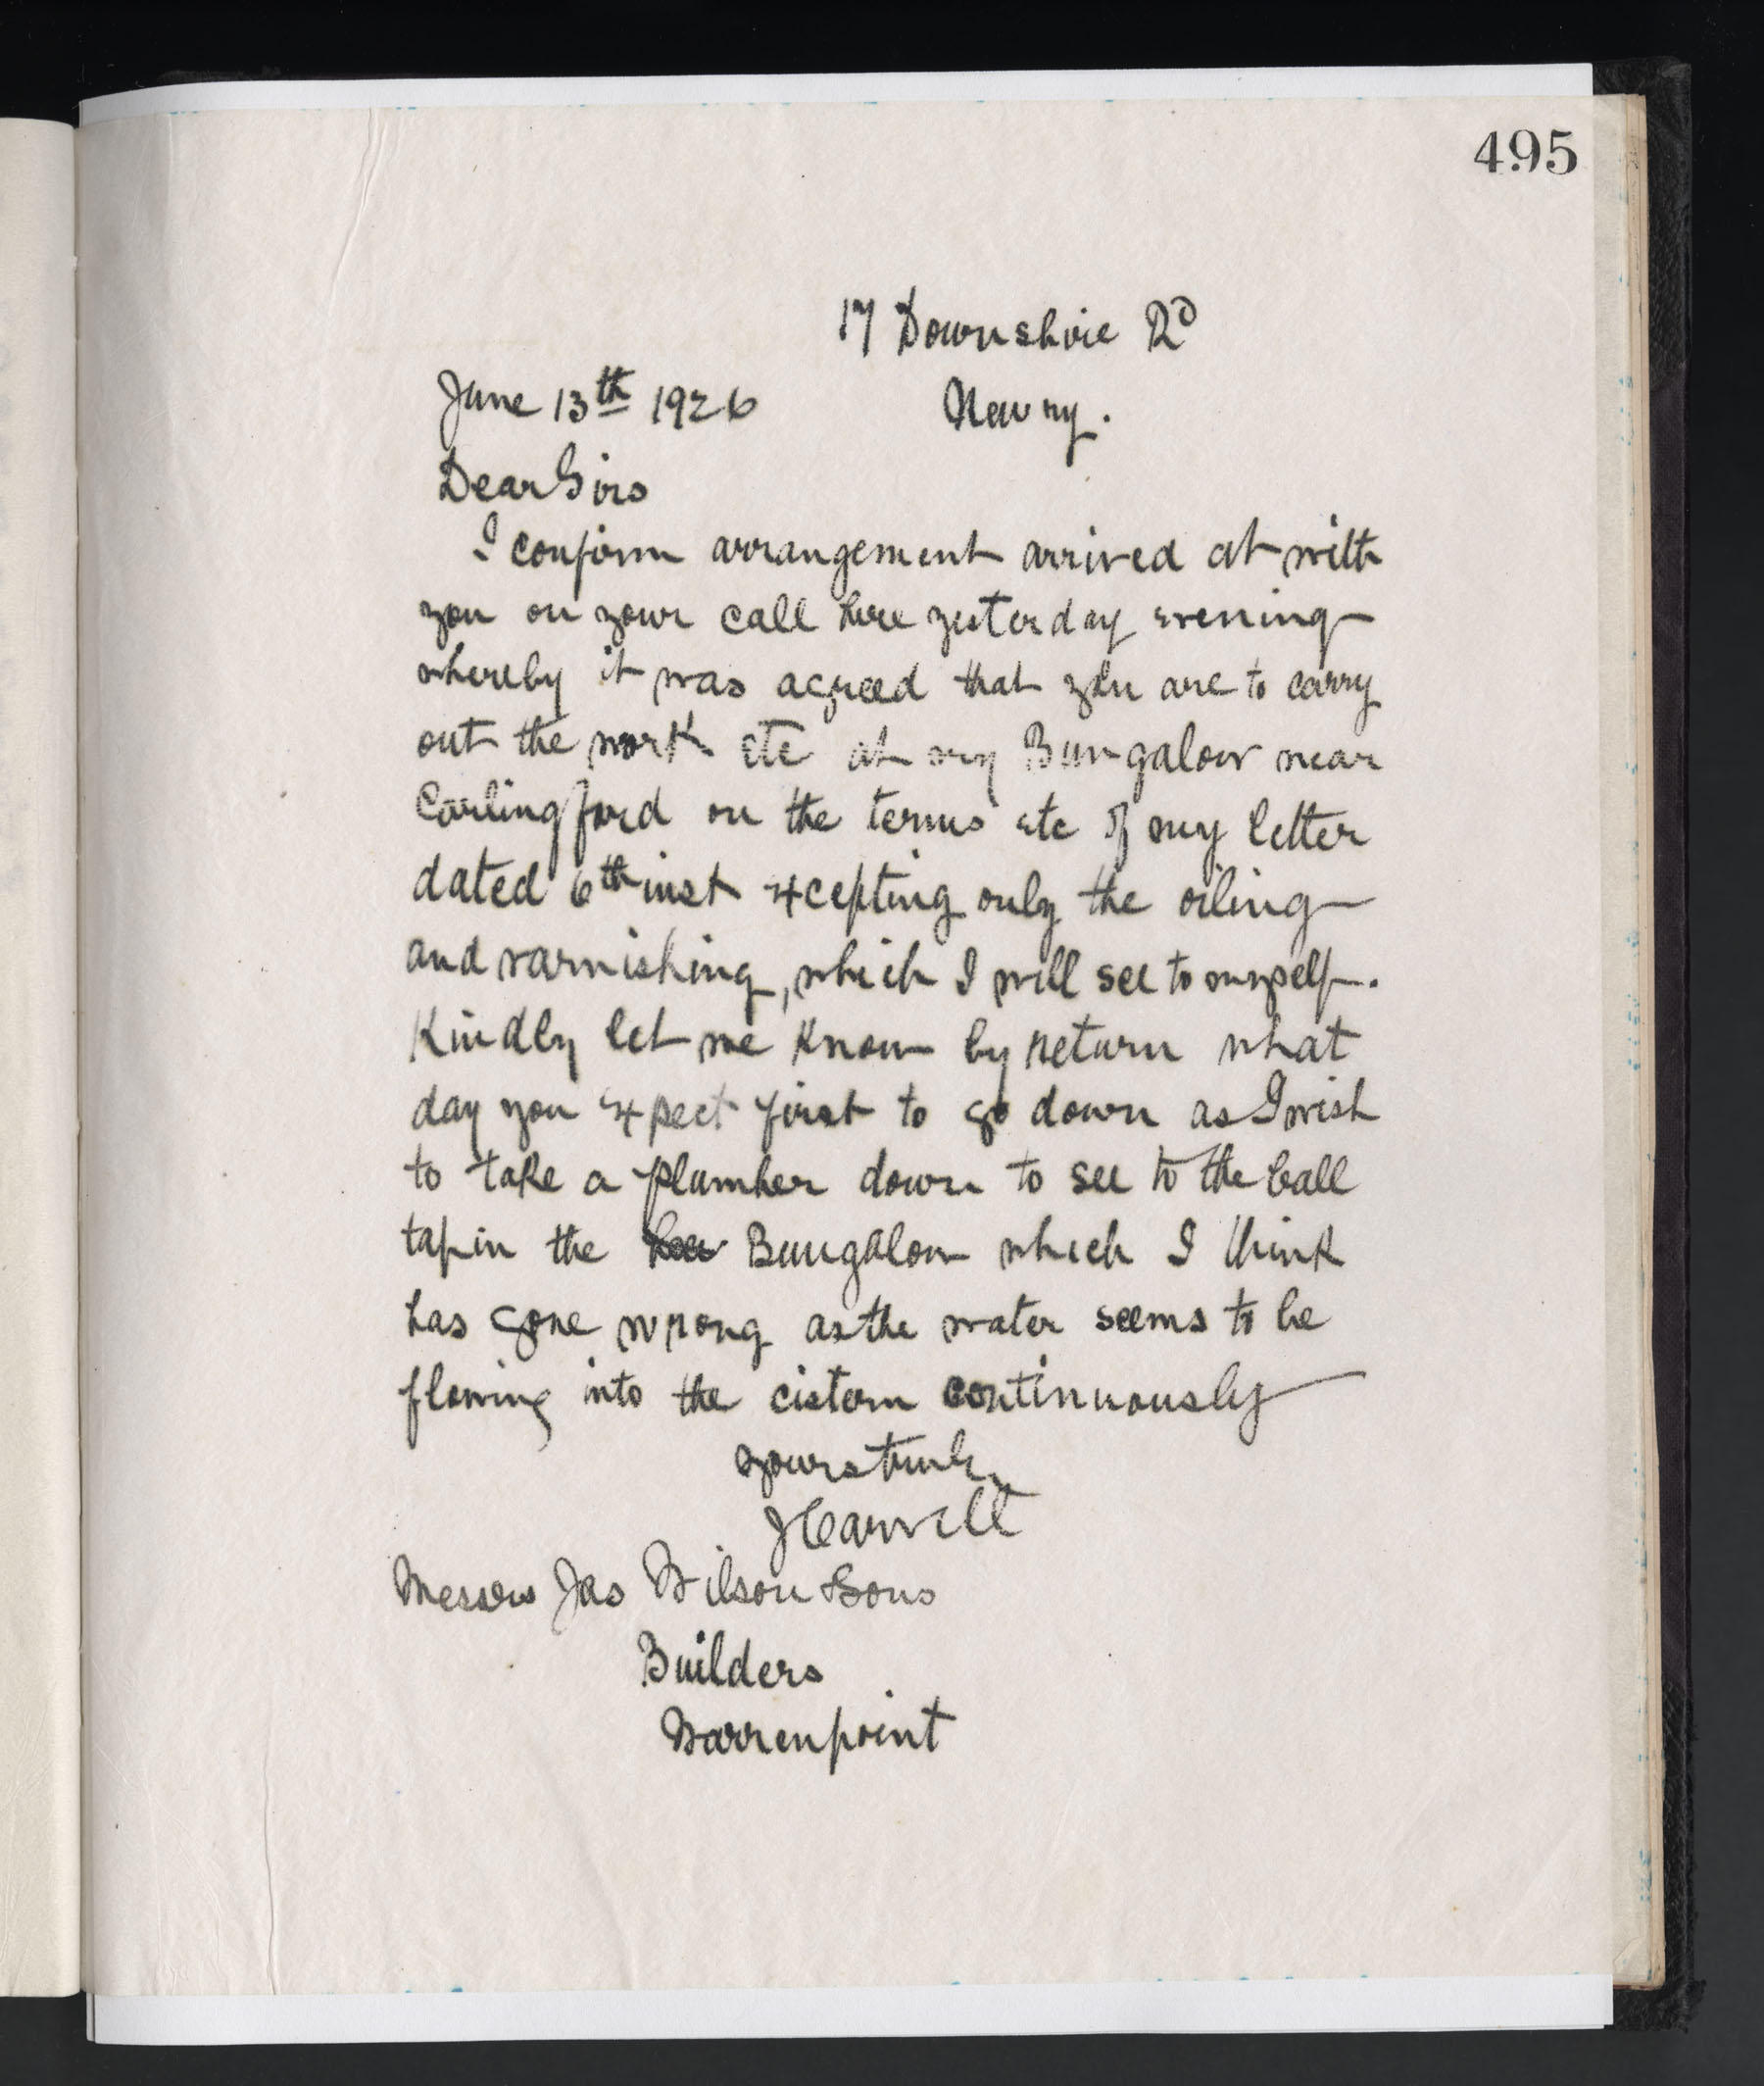 495
17 Downshire Rd
June 13th 1926 Newry.
Dear Sirs
I confirm arrangement arrived at with
you on your call here yesterday evening
whereby it was agreed that you are to carry
out the work etc at my Bungalow near
Carlingford on the terms etc of my letter
dated 6th inst excepting only the oiling
and varnishing, which I will see to myself.
Kindly let me know by return what
day you expect first to go down as I wish
to take a plumber down to see to the ball
tap in the Bungalow which I think
has gone wrong as the water seems to be
flowing into the cistern continuously
Yours truly
J Carvill
Messrs Jas Wilson & Sons
Builders
Warrenpoint